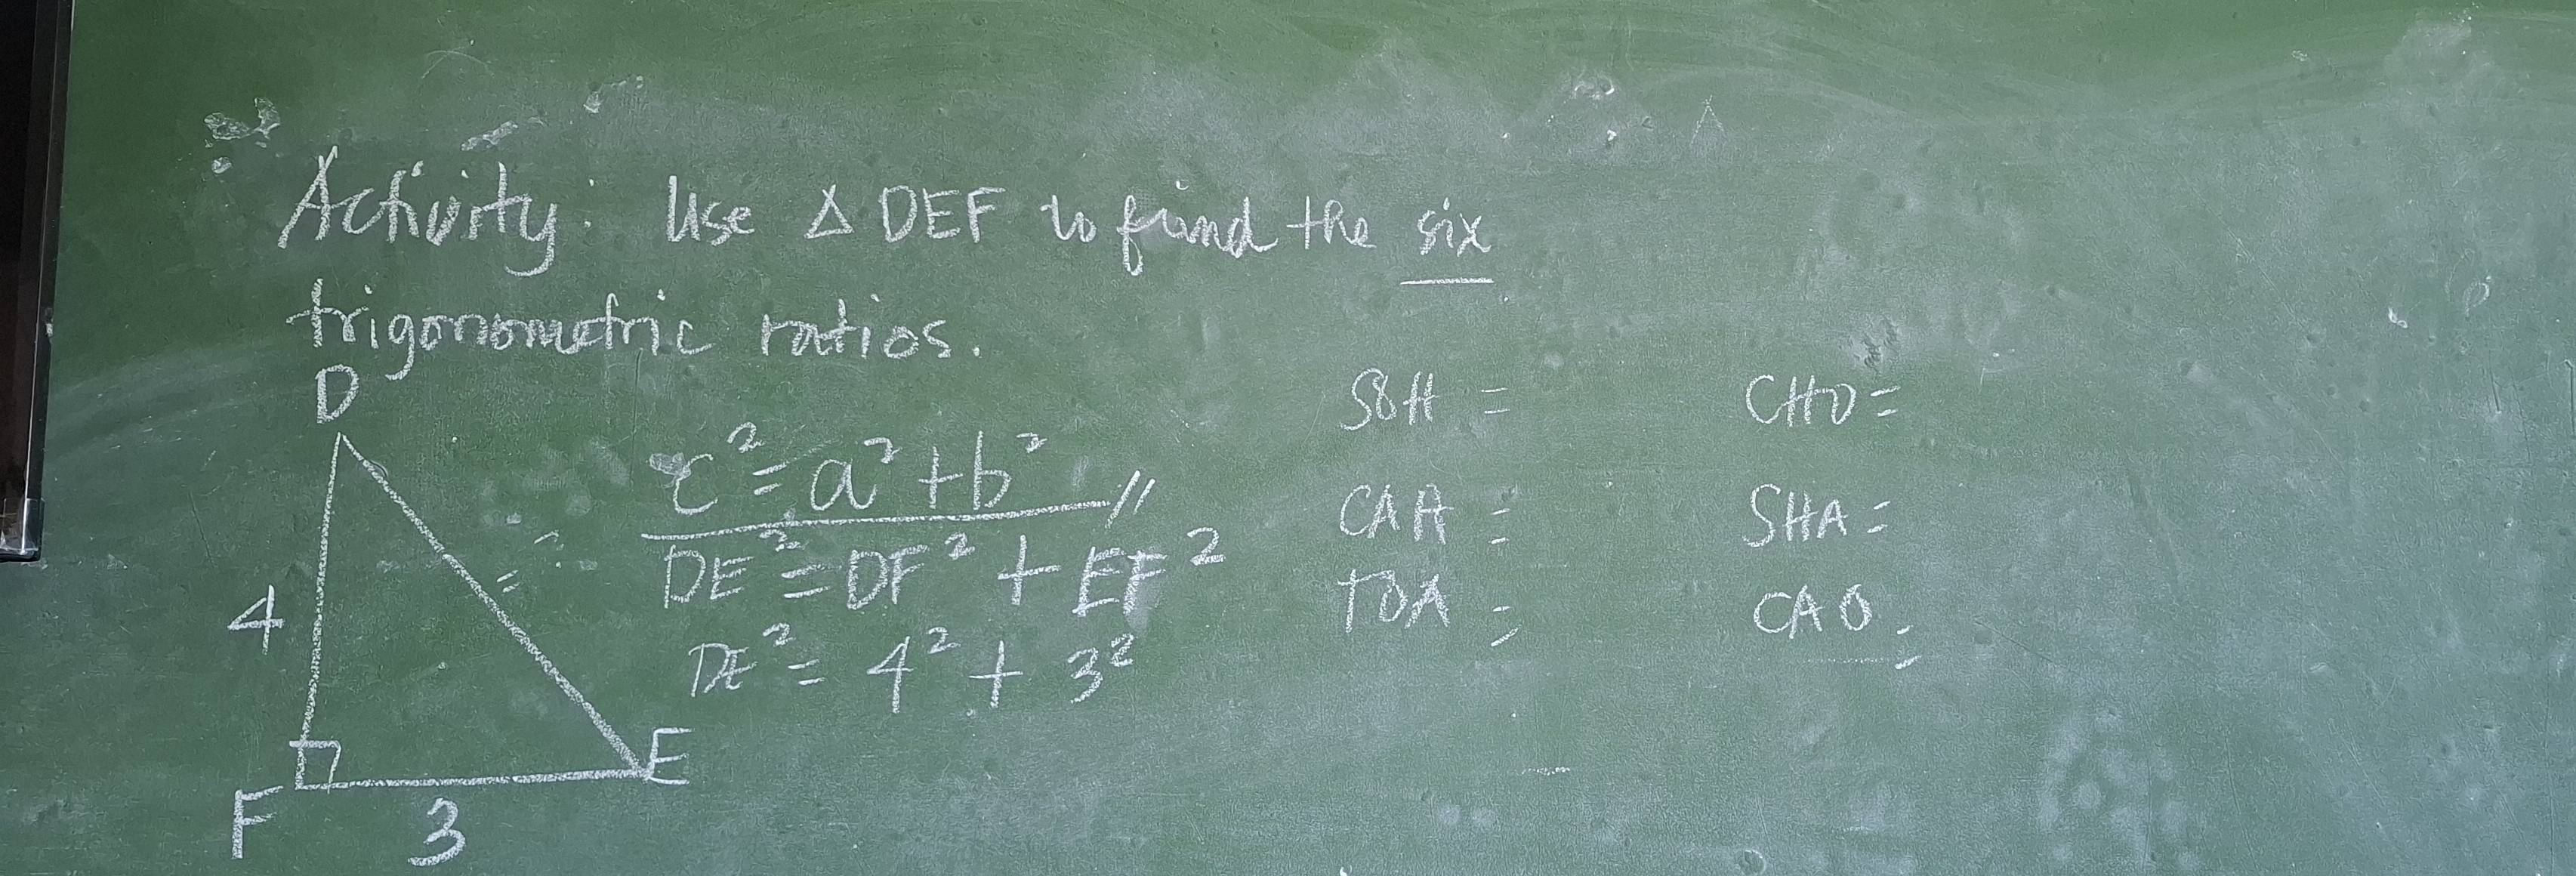 Activity: Use △ DEF to find the six
trigonometric ratios.
D
4
F
3
E
= ?
c² = a² + b²
DE² = DF² + EF²
DE² = 4² + 3²
SOH =
CAH =
TOA =
CHO =
SHA =
CAO =